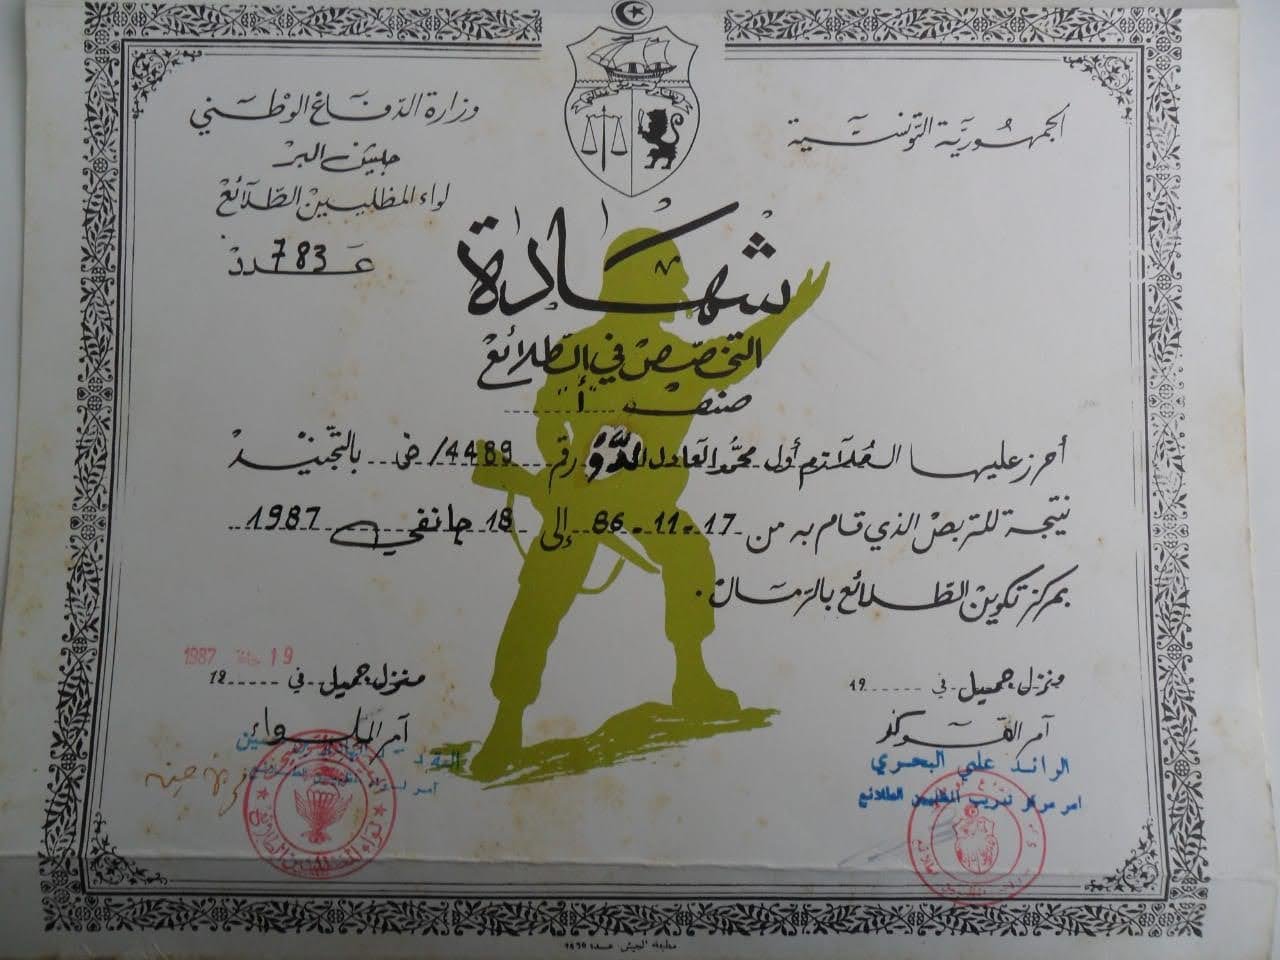 الجمهورية التونسية
وزارة الدفاع الوطني
جيش البر
لواء المظليين الطلائع
عدد 783
شهادة
التخصص في الطلائع
صنف "أ"
أحرز عليها الملازم أول محمد العادل رقم 4489/ض بالتجنيد
نتيجة للتربص الذي قام به من 17-11-86 إلى 18 جانفي 1987
بمركز تكوين الطلائع بالرمال.
منزل جميل في 19
آمر المركز
الرائد علي البحري
امر مركز تدريب المظليين الطلائع
19 1987
منزل جميل في 19
آمر اللواء
لواء المظليين الطلائع
مطبعة الجيش عدد